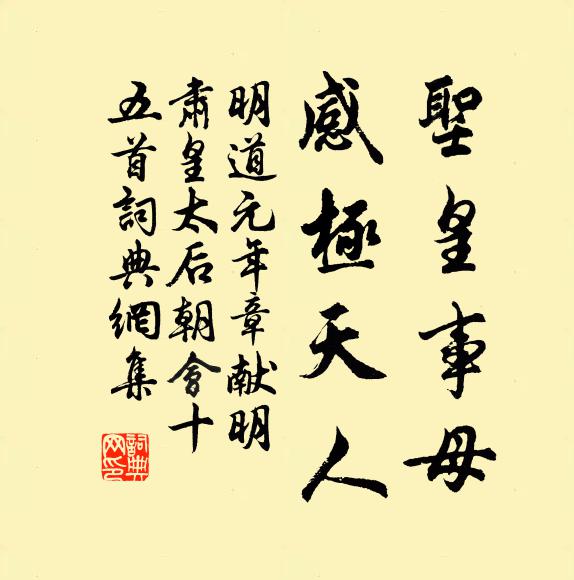 聖皇事母
感極天人
明道元年章献明
肅皇太后朝會十
五首詞典網集
詞典
网印